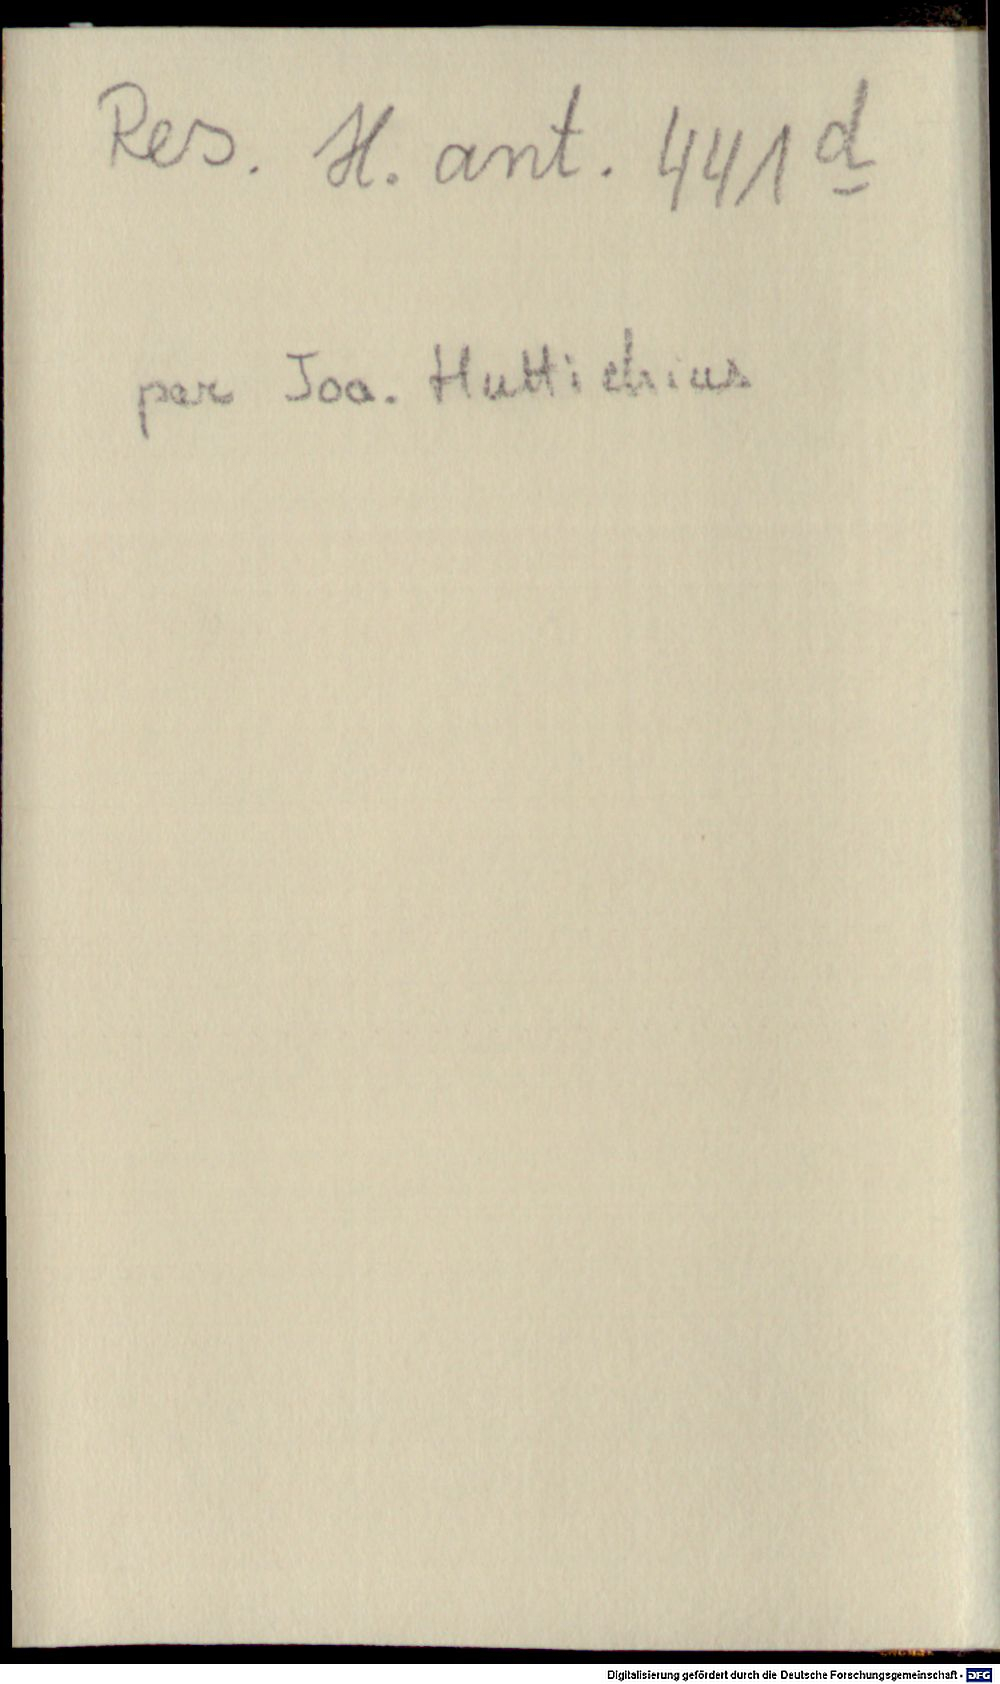 Res. H. ant. 441 d
per Joa. Huttichius
Digitalisierung gefördert durch die Deutsche Forschungsgemeinschaft - DFG